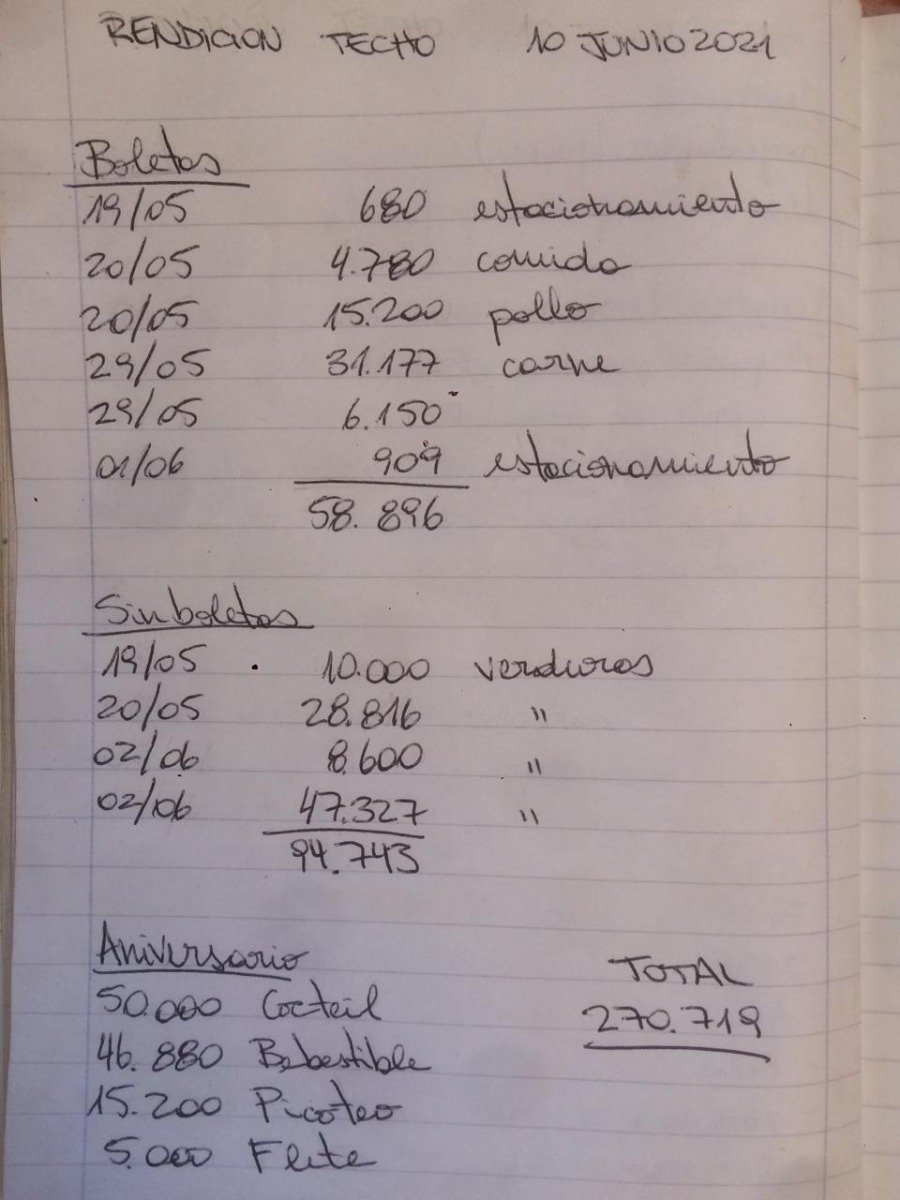 RENDICION TECHO 10 JUNIO 2021
Boletas
19/05 680 estacionamiento
20/05 4.780 comida
20/05 15.200 pollo
29/05 31.177 carne
29/05 6.150
01/06 909 estacionamiento
58.896
Sin boletas
19/05 10.000 verduras
20/05 28.816 "
02/06 8.600 "
02/06 47.327 "
94.743
Aniversario
TOTAL
50.000 Cocteil
270.719
46.880 Bebestible
15.200 Picoteo
5.000 Flete